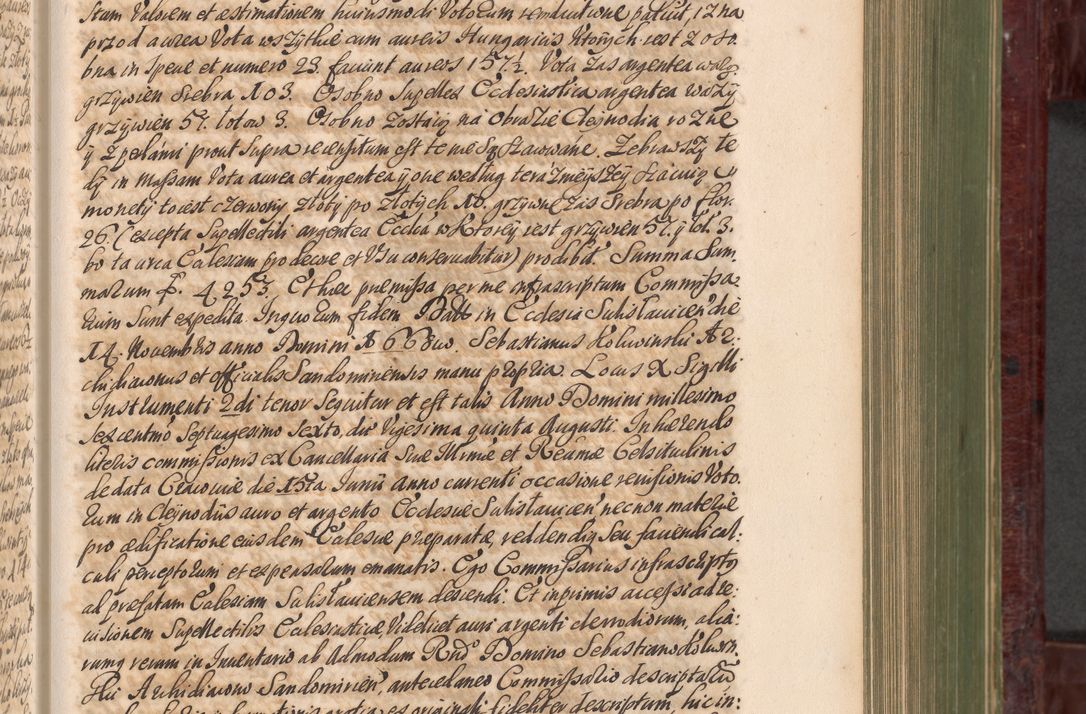 stam Valorem et æstimationem huiusmodi Votorum reductione patuit, iz na
przod aurea Vota wszytkie cum aureis Hungaricis ktorych iest z oso
bna in specie et numero 23. faciunt aureos 157½. Vota zas argentea waz
grzywien srebra 103. Osobno Supellex Ecclesiastica argentea wazy
grzywien 57. lotow 3. Osobno zostaią na obrazie Cleynodia rozne
y z perłami prout supra recensitum est te nie są szacowane. Zebrawszy te
dy in Massam Vota aurea et argentea y one według terazniejszey szacuiąc
monety to iest czerwony złoty po złotych 10. grzywnę zas srebra po flor.
26. (excepta Supellectili argentea Eccliæ w ktorey iest grzywien 57. y lot. 3.
bo ta circa Ecclesiam pro decore et Usu conservabitur) prodibit. Summa Sum
marum f. 4253. Et hæc præmissa per me infrascriptum Commissa
rium sunt expedita. In quorum fidem Datt in Ecclesia Sulislavicen die
14. Novembris anno Domini 1668vo. Sebastianus Kołuwinski Ar
chidiaconus et officialis Sandomiriensis manu propria. Locus X Sigilli
Instrumenti 2di tenor sequitur et est talis Anno Domini millesimo
sexcentmo Septuagesimo Sexto, die Vigesima quinta Augusti. Inhærendo
literis commissionis ex Cancellaria Suæ Illmæ et Rendmæ Celsitudinis
de data Cracoviæ die 15ta Junii Anno currenti occasione revisionis Voto
rum in Cleynodiis auro et argento Ecclesiæ Sulislavicen necnon materiæ
pro ædificatione eiusdem Ecclesiæ preparatæ, reddendiq seu faciendi cal:
culi perceptorum et expensarum emanatis. Ego Commissarius infrascriptus
ad præfatam Ecclesiam Sulislaviciensem descendi: Et inprimis accessi ad re:
visionem Supellectilis Ecclesiasticæ Videlicet auri argenti clenodiorum, alia:
rumq rerum in Inventario ab Admodum Rndo Domino Sebastiano Kołuwin
skii Archidiacono Sandomirien, antecedaneo Commissario descriptarum